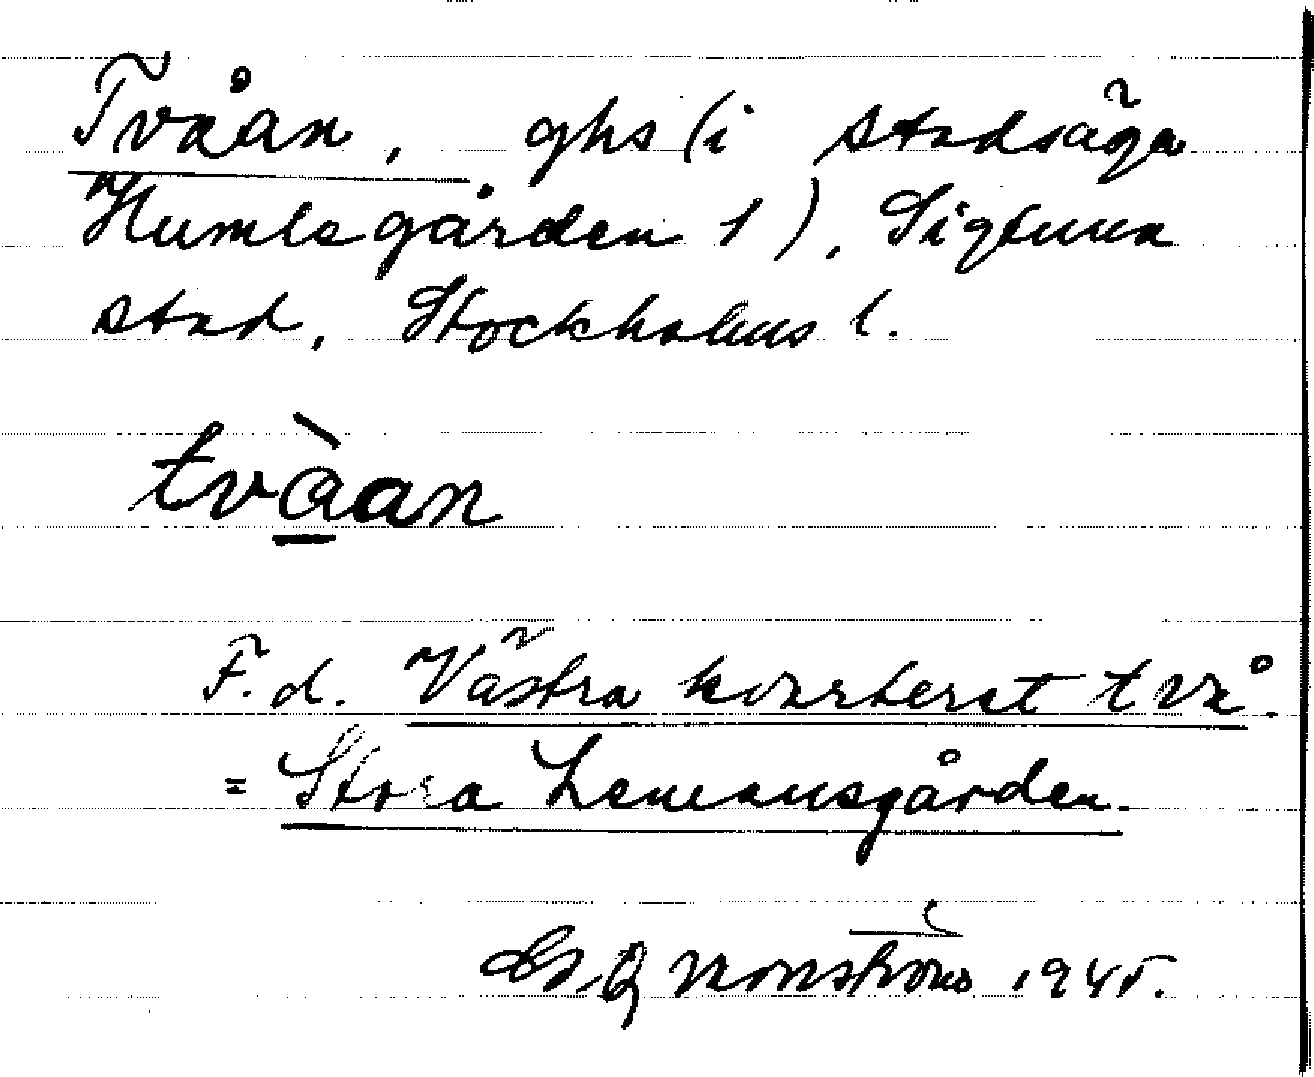 Tvåan, ghs (i stadsäga
Humlegården 1), Sigtuna
stad, Stockholms l.
tvàan
F.d. Västra kvarteret två.
= Stora
1945.